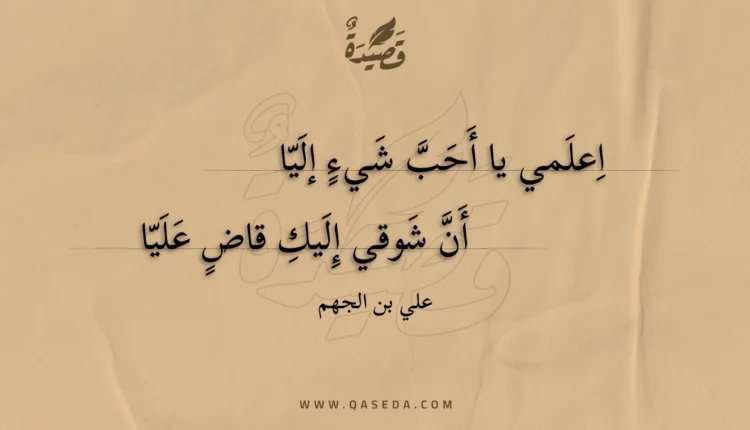 قَصِيدَةٌ
اِعلَمي يا أَحَبَّ شَيءٍ إلَيّا
أَنَّ شَوقي إِلَيكِ قاضٍ عَلَيّا
علي بن الجهم
WWW.QASEDA.COM